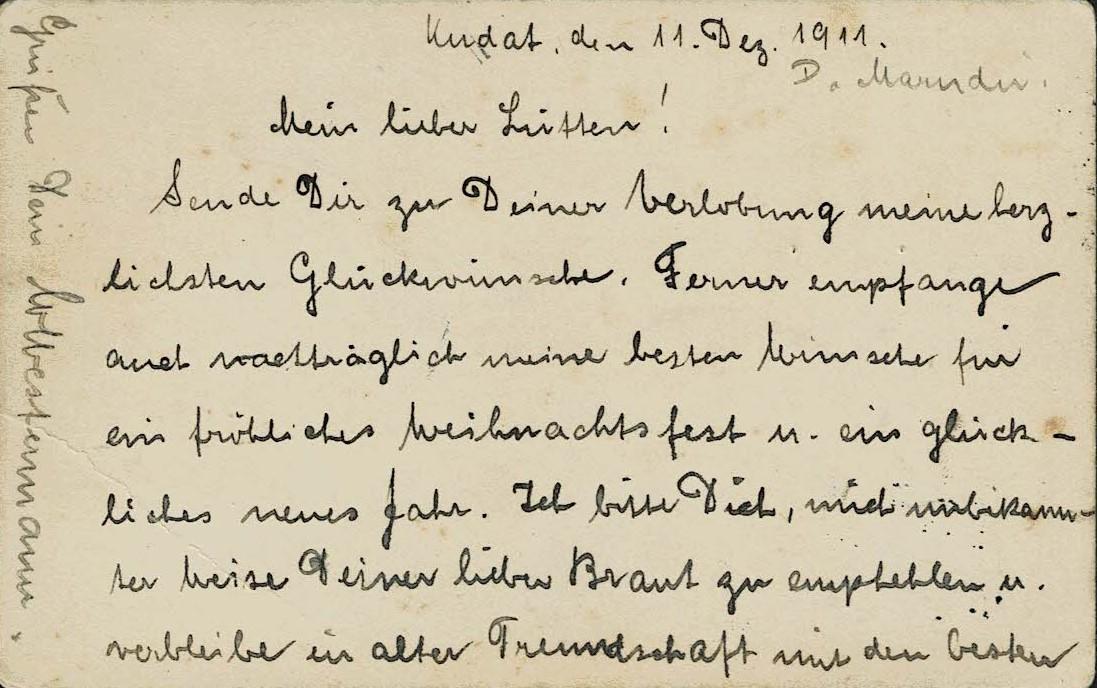 Kudat, den 11. Dez. 1911.
D. Marudu.
Mein lieber Lütten!
Sende Dir zu Deiner Verlobung meine herz-
lichsten Glückwünsche. Ferner empfange
auch nachträglich meine besten Wünsche für
ein fröhliches Weihnachtsfest u. ein glück-
liches neues Jahr. Ich bitte Dich, mich unbekann-
ter Weise Deiner lieben Braut zu empfehlen u.
verbleibe in alter Freundschaft mit den besten
Grüßen Dein W. Westermann.